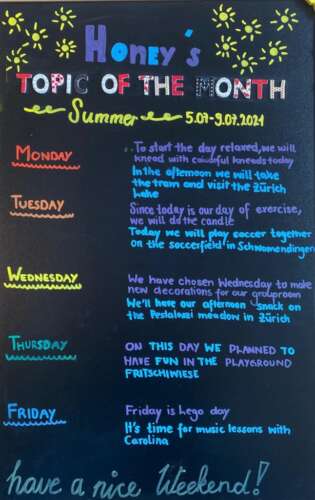 Honey's
TOPIC OF THE MONTH
Summer 5.07-9.07.2021
MONDAY
To start the day relaxed, we will
knead with colourful kneads today
In the afternoon we will take
the train and visit the Zürich
Lake
TUESDAY
Since today is our day of exercise,
we will do the candle
Today we will play soccer together
on the soccerfield in Schwamendingen
WEDNESDAY
We have chosen Wednesday to make
new decorations for our grouproom
We'll have our afternoon snack on
the Pestalozzi meadow in Zürich
THURSDAY
ON THIS DAY WE PLANNED TO
HAVE FUN IN THE PLAYGROUND
FRITSCHIWIESE
FRIDAY
Friday is Lego day
It's time for music lessons with
Carolina
have a nice Weekend!